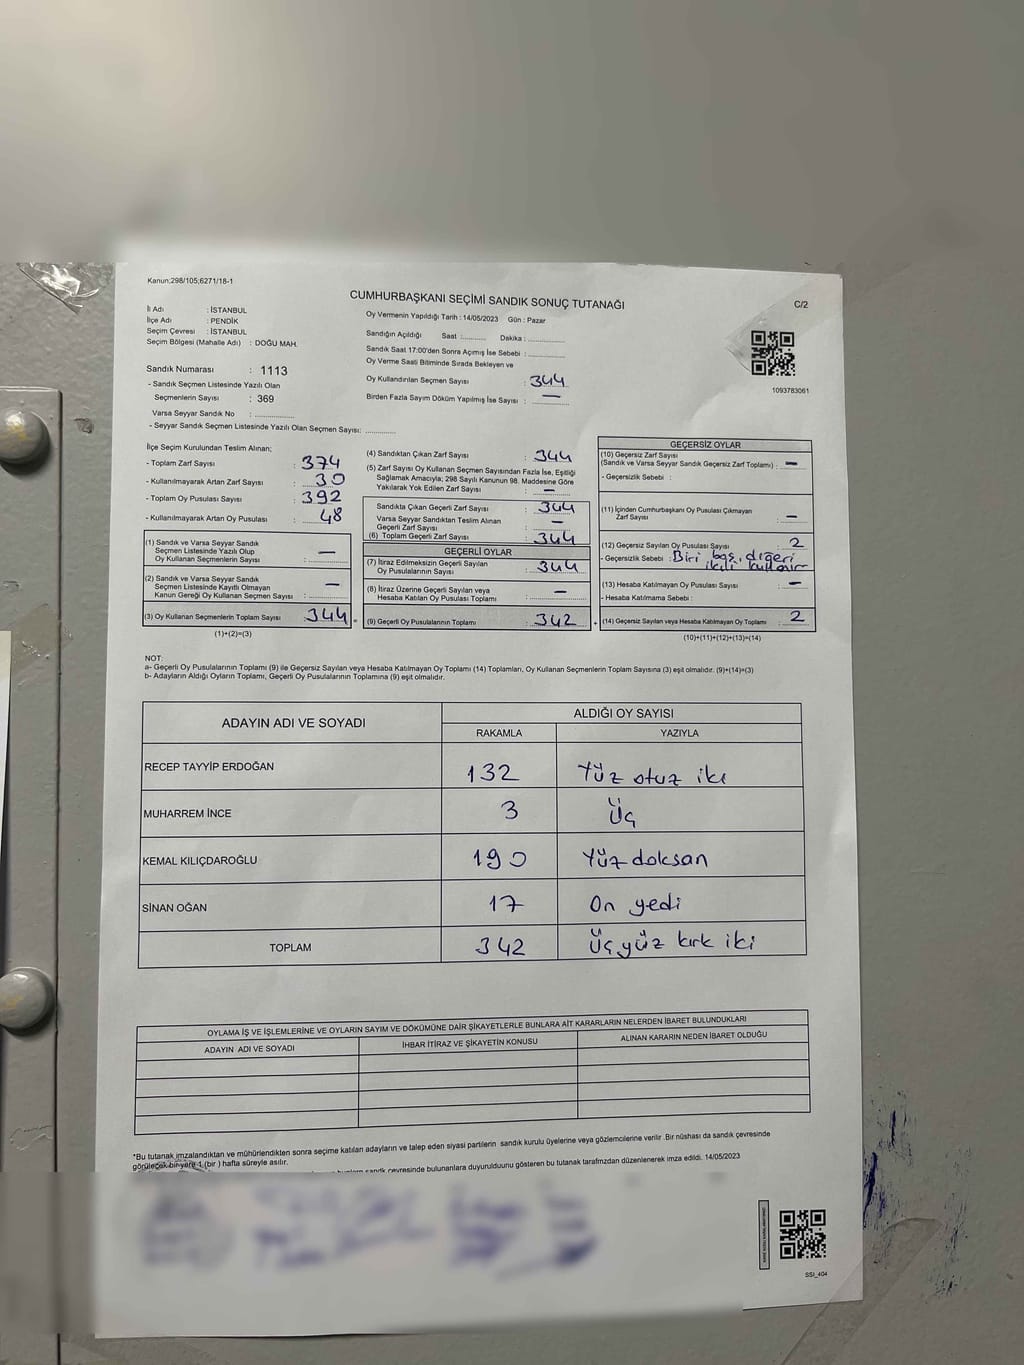 Kanun;298/105;6271/18-1
CUMHURBAŞKANI SEÇİMİ SANDIK SONUÇ TUTANAĞI
C/2
İli Adı : İSTANBUL
İlçe Adı : PENDİK
Seçim Çevresi : İSTANBUL
Seçim Bölgesi (Mahalle Adı) : DOĞU MAH.
Sandık Numarası : 1113
- Sandık Seçmen Listesinde Yazılı Olan
Seçmenlerin Sayısı : 369
Varsa Seyyar Sandık No : ..............
- Seyyar Sandık Seçmen Listesinde Yazılı Olan Seçmen Sayısı: ...........
Oy Vermenin Yapıldığı Tarih : 14/05/2023 Gün : Pazar
Sandığın Açıldığı Saat :......... Dakika : .............
Sandık Saat 17:00'den Sonra Açımış İse Sebebi : .............
Oy Verme Saati Bitiminde Sırada Bekleyen ve
Oy Kullandırılan Seçmen Sayısı : 344
Birden Fazla Sayım Döküm Yapılmış İse Sayısı : —
1093783061
İlçe Seçim Kurulundan Teslim Alınan;
- Toplam Zarf Sayısı : 374
- Kullanılmayarak Artan Zarf Sayısı : 30
- Toplam Oy Pusulası Sayısı : 392
- Kullanılmayarak Artan Oy Pusulası : 48
(1) Sandık ve Varsa Seyyar Sandık
Seçmen Listesinde Yazılı Olup
Oy Kullanan Seçmenlerin Sayısı : —
(2) Sandık ve Varsa Seyyar Sandık
Seçmen Listesinde Kayıtlı Olmayan
Kanun Gereği Oy Kullanan Seçmen Sayısı : —
(3) Oy Kullanan Seçmenlerin Toplam Sayısı : 344 =
(1)+(2)=(3)
(4) Sandıktan Çıkan Zarf Sayısı : 344
(5) Zarf Sayısı Oy Kullanan Seçmen Sayısından Fazla İse, Eşitliği
Sağlamak Amacıyla; 298 Sayılı Kanunun 98. Maddesine Göre
Yakılarak Yok Edilen Zarf Sayısı : —
Sandıkta Çıkan Geçerli Zarf Sayısı : 344
Varsa Seyyar Sandıktan Teslim Alınan
Geçerli Zarf Sayısı : —
(6) Toplam Geçerli Zarf Sayısı : 344
GEÇERLİ OYLAR
(7) İtiraz Edilmeksizin Geçerli Sayılan
Oy Pusulalarının Sayısı : 344
(8) İtiraz Üzerine Geçerli Sayılan veya
Hesaba Katılan Oy Pusulası Toplamı : —
(9) Geçerli Oy Pusulalarının Toplamı : 342 +
GEÇERSİZ OYLAR
(10) Geçersiz Zarf Sayısı
(Sandık ve Varsa Seyyar Sandık Geçersiz Zarf Toplamı) : —
- Geçersizlik Sebebi :
(11) İçinden Cumhurbaşkanı Oy Pusulası Çıkmayan
Zarf Sayısı : —
(12) Geçersiz Sayılan Oy Pusulası Sayısı : 2
- Geçersizlik Sebebi : Biri boş, diğeri
ikili
(13) Hesaba Katılmayan Oy Pusulası Sayısı : —
- Hesaba Katılmama Sebebi :
(14) Geçersiz Sayılan veya Hesaba Katılmayan Oy Toplamı : 2
(10)+(11)+(12)+(13)=(14)
NOT:
a- Geçerli Oy Pusulalarının Toplamı (9) ile Geçersiz Sayılan veya Hesaba Katılmayan Oy Toplamı (14) Toplamları, Oy Kullanan Seçmenlerin Toplam Sayısına (3) eşit olmalıdır. (9)+(14)=(3)
b- Adayların Aldığı Oyların Toplamı, Geçerli Oy Pusulalarının Toplamına (9) eşit olmalıdır.
ADAYIN ADI VE SOYADI ALDIĞI OY SAYISI
RAKAMLA YAZIYLA
RECEP TAYYİP ERDOĞAN 132 Yüz otuz iki
MUHARREM İNCE 3 Üç
KEMAL KILIÇDAROĞLU 190 Yüz doksan
SİNAN OĞAN 17 On yedi
TOPLAM 342 Üç yüz kırk iki
OYLAMA İŞ VE İŞLEMLERİNE VE OYLARIN SAYIM VE DÖKÜMÜNE DAİR ŞİKAYETLERLE BUNLARA AİT KARARLARIN NELERDEN İBARET BULUNDUKLARI
ADAYIN ADI VE SOYADI İHBAR İTİRAZ VE ŞİKAYETİN KONUSU ALINAN KARARIN NEDEN İBARET OLDUĞU
*Bu tutanak imzalandıktan ve mühürlendikten sonra seçime katılan adayların ve talep eden siyasi partilerin sandık kurulu üyelerine veya gözlemcilerine verilir .Bir nüshası da sandık çevresinde
görülecek bir yere 1 (bir ) hafta süreyle asılır.
sandık çevresinde bulunanlara duyurulduunu gösteren bu tutanak tarafımzdan düzenlenerek imza edildi. 14/05/2023
SSI_404